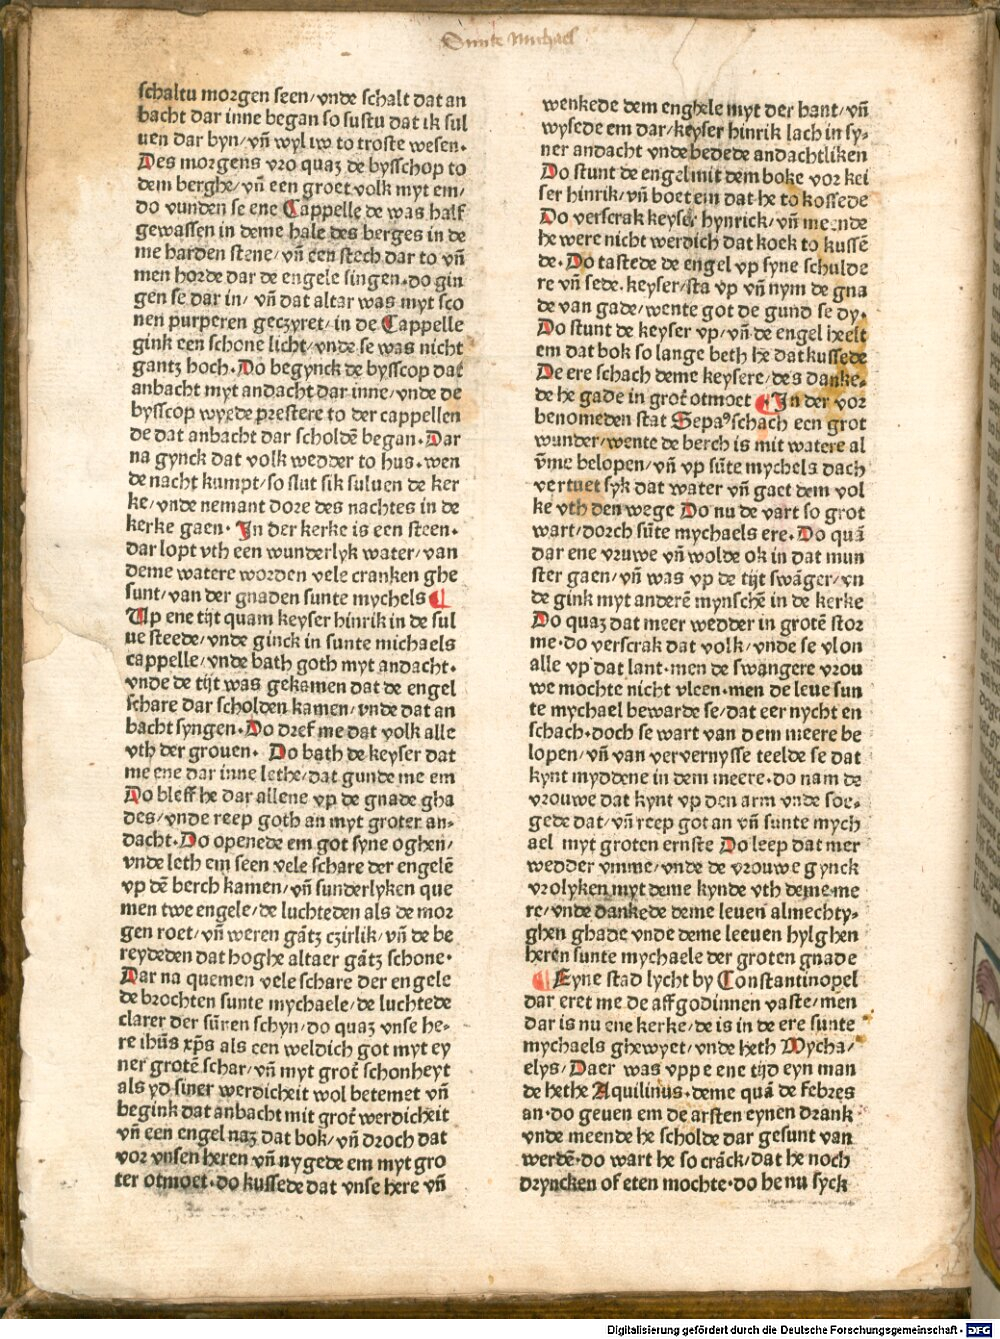 Sunte Michael
schaltu morgen seen/vnde schalt dat an
bacht dar inne began so sustu dat ik sul
uen dar byn/vn̄ wyl iw to troste wesen.
Des morgens vro quaʒ de bysschop to
dem berghe/vn̄ een groet volk myt em/
do vunden se ene Cappelle de was half
gewassen in deme hale des berges in de
me harden stene/vn̄ een stech dar to vn̄
men horde dar de engele singen.do gin
gen se dar in/ vn̄ dat altar was myt sco
nen purperen geczyret/in de Cappelle
gink een schone licht/vnde se was nicht
gantz hoch.Do begynck de bysscop dat
anbacht myt andacht dar inne/vnde de
bysscop wyede prestere to der cappellen
de dat anbacht dar scholdē began.Dar
na gynck dat volk wedder to hus.wen
de nacht kumpt/so slut sik suluen de ker
ke/vnde nemant dore des nachtes in de
kerke gaen. In der kerke is een steen.
dar lopt vth een wunderlyk water/van
deme watere worden vele cranken ghe
sunt/van der gnaden sunte mychels ¶
Up ene tijt quam keyser hinrik in de sul
ue steede/vnde ginck in sunte michaels
cappelle/vnde bath goth myt andacht.
vnde de tijt was gekamen dat de engel
schare dar scholden kamen/vnde dat an
bacht syngen.Do dref me dat volk alle
vth der grouen. Do bath de keyser dat
me ene dar inne lethe/dat gunde me em
Do bleff he dar allene vp de gnade gha
des/vnde reep goth an myt groter an-
dacht.Do openede em got syne oghen/
vnde leth em seen vele schare der engelē
vp dē berch kamen/vn̄ sunderlyken que
men twe engele/de luchteden als de mor
gen roet/vn̄ weren gātz czirlik/vn̄ de be
reydeden dat hoghe altaer gātz schone.
Dar na quemen vele schare der engele
de brochten sunte mychaele/de luchtede
clarer der sūnen schyn/do quaʒ vnse he-
re ihūs xp̄s als een weldich got myt ey
ner grotē schar/vn̄ myt grot̄ schonheyt
als yd siner werdicheit wol betemet vn̄
begink dat anbacht mit grot̄ werdicheit
vn̄ een engel naʒ dat bok/vn̄ droch dat
vor vnsen heren vn̄ nygede em myt gro
ter otmoet.do kussede dat vnse here vn̄
wenkede dem enghele myt der hant/vn̄
wysede em dar/keyser hinrik lach in sy-
ner andacht vnde bedede andachtliken
Do stunt de engel mit dem boke vor kei
ser hinrik/vn̄ boet em dat he to kossede
Do verscrak keyser hynrick/vn̄ meende
he were nicht werdich dat koek to kussē
de.Do tastede de engel vp syne schulde
re vn̄ sede.keyser/sta vp vn̄ nym de gna
de van gade/wente got de gund se dy.
Do stunt de keyser vp/vn̄ de engel heelt
em dat bok so lange beth he dat kussede
De ere schach deme keysere/des danke-
de he gade in grot̄ otmoet ¶ In der vor
benomeden stat Sepaꝰ schach een grot
wunder/wente de berch is mit watere al
v̄me belopen/vn̄ vp sūte mychels dach
vertuet syk dat water vn̄ gaet dem vol
ke vth den wege Do nu de vart so grot
wart/dorch sūte mychaels ere.Do quā
dar ene vruwe vn̄ wolde ok in dat mun
ster gaen/vn̄ was vp de tijt swāger/vn
de gink myt anderē mynschē in de kerke
Do quaʒ dat meer wedder in grotē stor
me.do verscrak dat volk/vnde se vlon
alle vp dat lant.men de swangere vrou
we mochte nicht vleen.men de leue sun
te mychael bewarde se/dat eer nycht en
schach.doch se wart van dem meere be
lopen/vn̄ van ververnysse teelde se dat
kynt myddene in dem meere.do nam de
vrouwe dat kynt vp den arm vnde soe-
gede dat/vn̄ reep got an vn̄ sunte mych
ael myt groten ernste Do leep dat mer
wedder vmme/vnde de vrouwe gynck
vrolyken myt deme kynde vth deme me
re/vnde dankede deme leuen almechty-
ghen ghade vnde deme leeuen hylghen
heren sunte mychaele der groten gnade
¶ Eyne stad lycht by Constantinopel
dar eret me de affgodinnen vaste/men
dar is nu ene kerke/de is in de ere sunte
mychaels ghewyet/vnde heth Mycha/
elys/Daer was vppe ene tijd eyn man
de hethe Aquilinus.deme quā de febres
an.do geuen em de arsten eynen drank
vnde meende he scholde dar gesunt van
werdē.do wart he so crāck/dat he noch
dryncken of eten mochte.do he nu syck
Digitalisierung gefördert durch die Deutsche Forschungsgemeinschaft - DFG